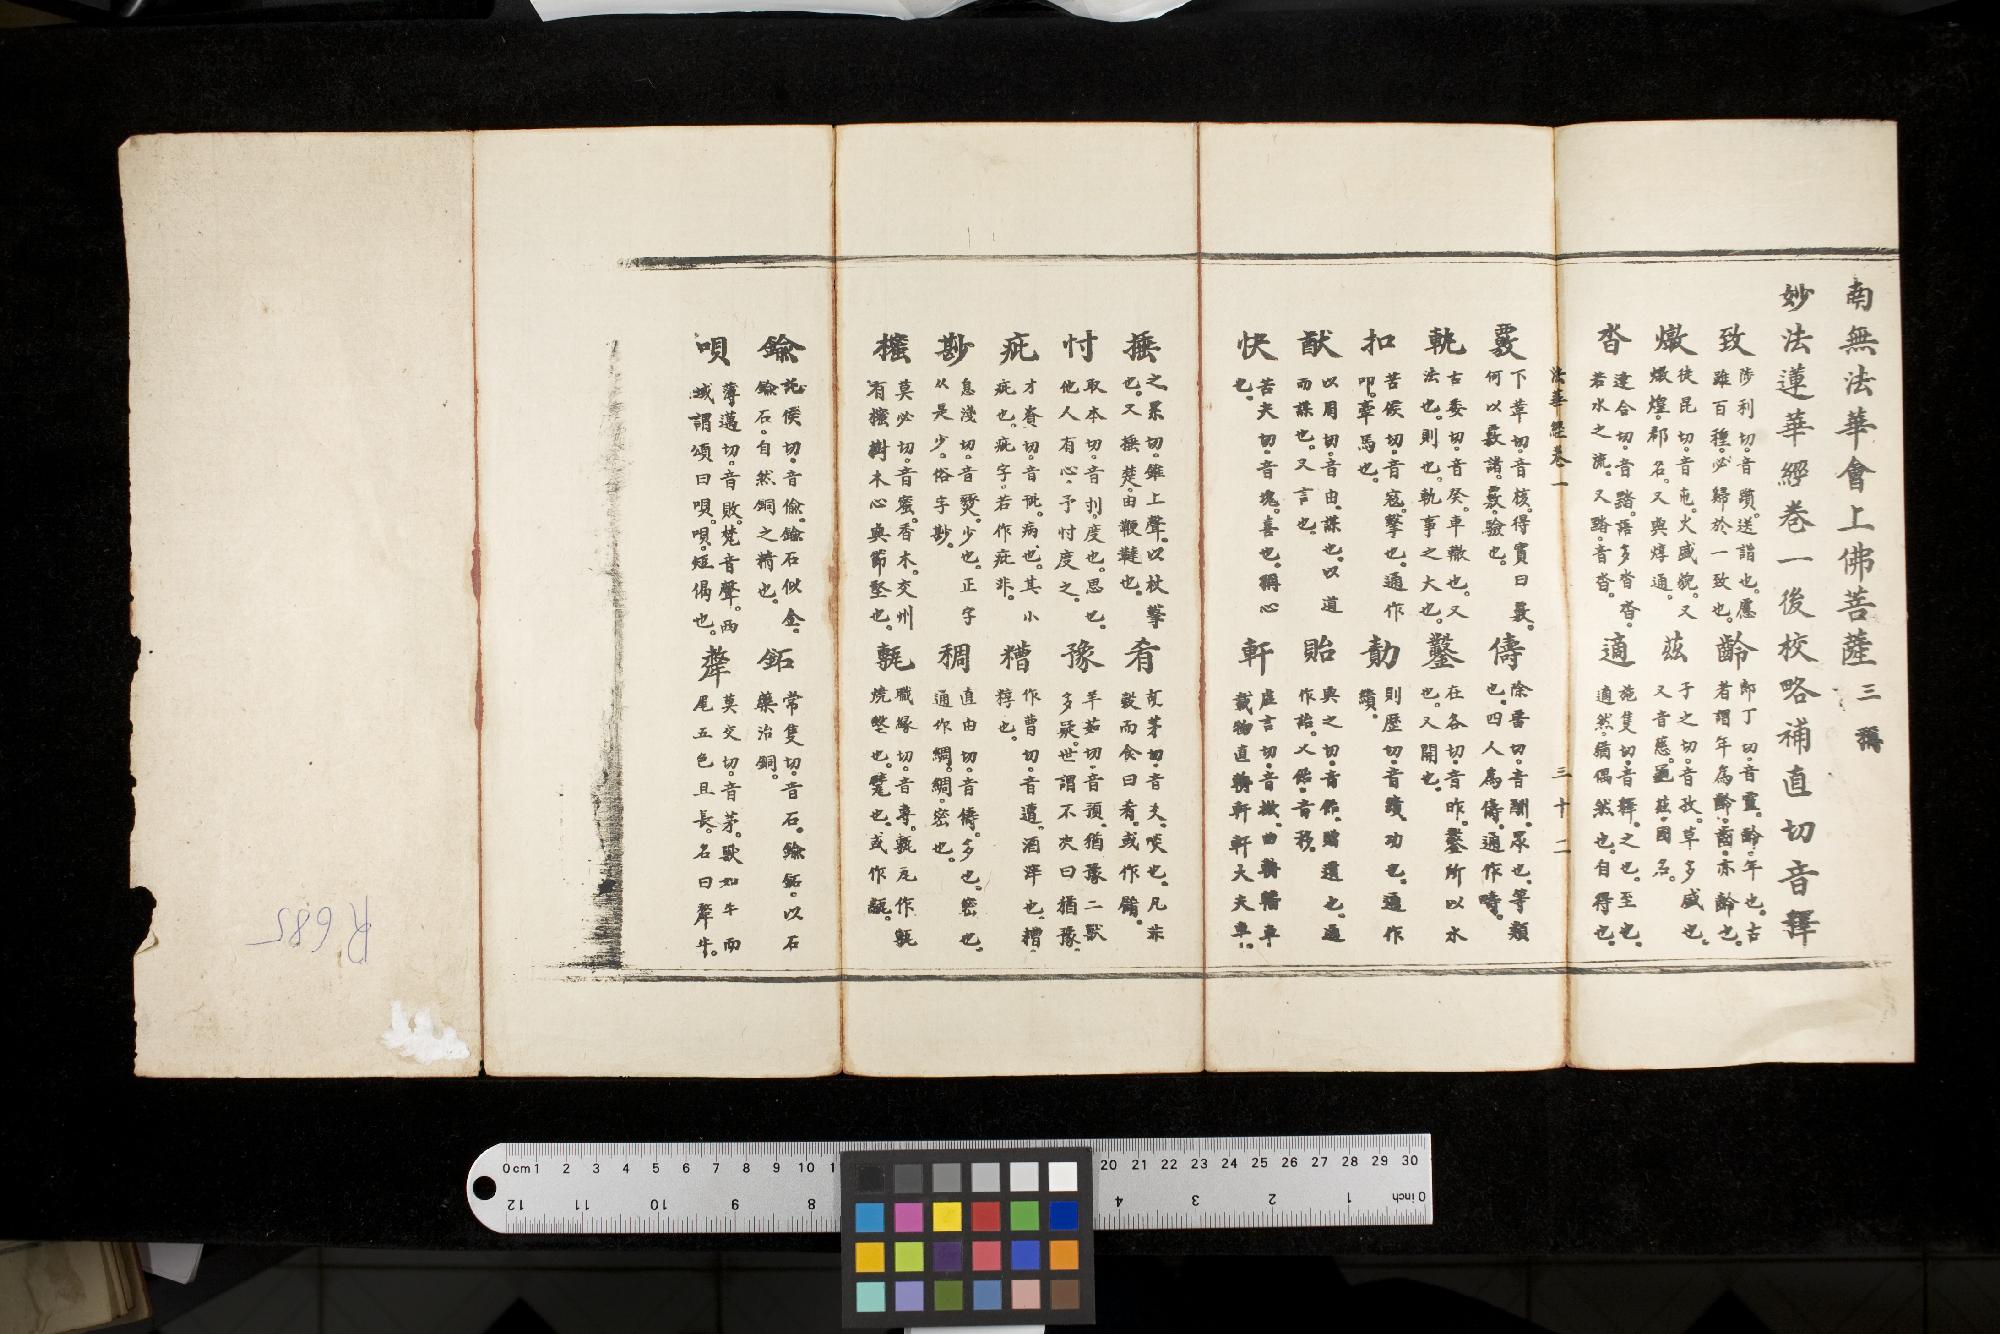 南無法華會上佛菩薩 三稱
妙法蓮華經卷一後校略補直切音釋
致 陟利切。音躓。送詣也。應
雖百種。必歸於一致也。
齡 郎丁切。音靈。齡。年也。古
者謂年為齡。齒亦齡也。
燉 徒昆切。音屯。火盛貌。又
燉煌。郡名。又與焞通。
茲 子之切。音孜。草多盛也。
又音慈。龜茲。國名。
沓 達合切。音踏。語多沓沓。
若水之流。又踏。音沓。
適 施隻切。音釋。之也。至也。
適然。猶偶然也。自得也。
法華經卷一 三十二
覈 下革切。音核。得實曰覈。
何以覈諸。覈。驗也。
儔 除留切。音酬。眾也。等類
也。四人為儔。通作疇。
軌 古委切。音癸。車轍也。又
法也。則也。軌事之大也。
鑿 在各切。音昨。鑿所以木
也。又開也。
扣 苦候切。音寇。擊也。通作
叩。牽馬也。
勣 則歷切。音績。功也。通作
績。
猷 以周切。音由。謀也。以道
而謀也。又言也。
貽 與之切。音飴。贈遺也。通
作詒。又貽。音移。
快 苦夬切。音塊。喜也。稱心
也。
軒 虛言切。音掀。曲輈轓車
載物直輈軒。軒大夫車。
捶 之累切。錐上聲。以杖擊
也。又捶楚。由鞭韃也。
肴 音爻。啖也。凡非
穀而食曰肴。或作餚。
忖 取本切。音刌。度也。思也。
他人有心。予忖度之。
豫 羊茹切。音預。猶豫二獸
多疑。世謂不決曰猶豫。
疵 才資切。音玼。病也。其小
疵也。疵字。若作疵非。
糟 作曹切。音遭。酒滓也。糟
粹也。
尠 息淺切。音燹。少也。正字
从是少。俗字尠。
稠 直由切。音儔。多也。密也。
通作綢。綢。密也。
榓 莫必切。音蜜。香木。交州
有榓樹木心與節堅也。
甎 職緣切。音專。甎瓦作甎
燒墼也。甓也。或作
鍮 託侯切。音偷。鍮石似金。
鍮石。自然銅之精也。
鉐 常隻切。音石。鍮鉐。以石
藥治銅。
唄 薄邁切。音敗。梵音聲。西
域謂頌曰唄。唄。短偈也。
犛 莫交切。音茅。獸如牛而
尾五色且長。名曰犛牛。
R685